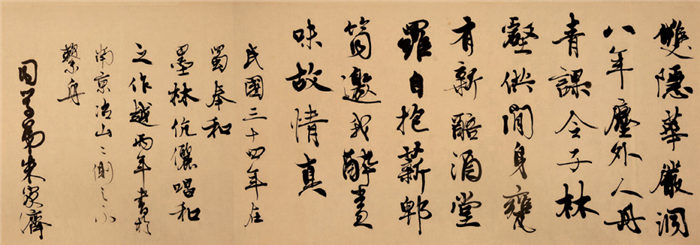 雙隱華嚴洞
八年塵外人丹
青課令子林
壑供閒身甕
有新醅酒堂
羅自抱薪郫
筒邀我醉盡
味故情真
民國三十四年在
蜀奉和
墨林伉儷唱和
之作越兩年書於
南京冶山〻側之不
繫舟
同學弟朱家濟